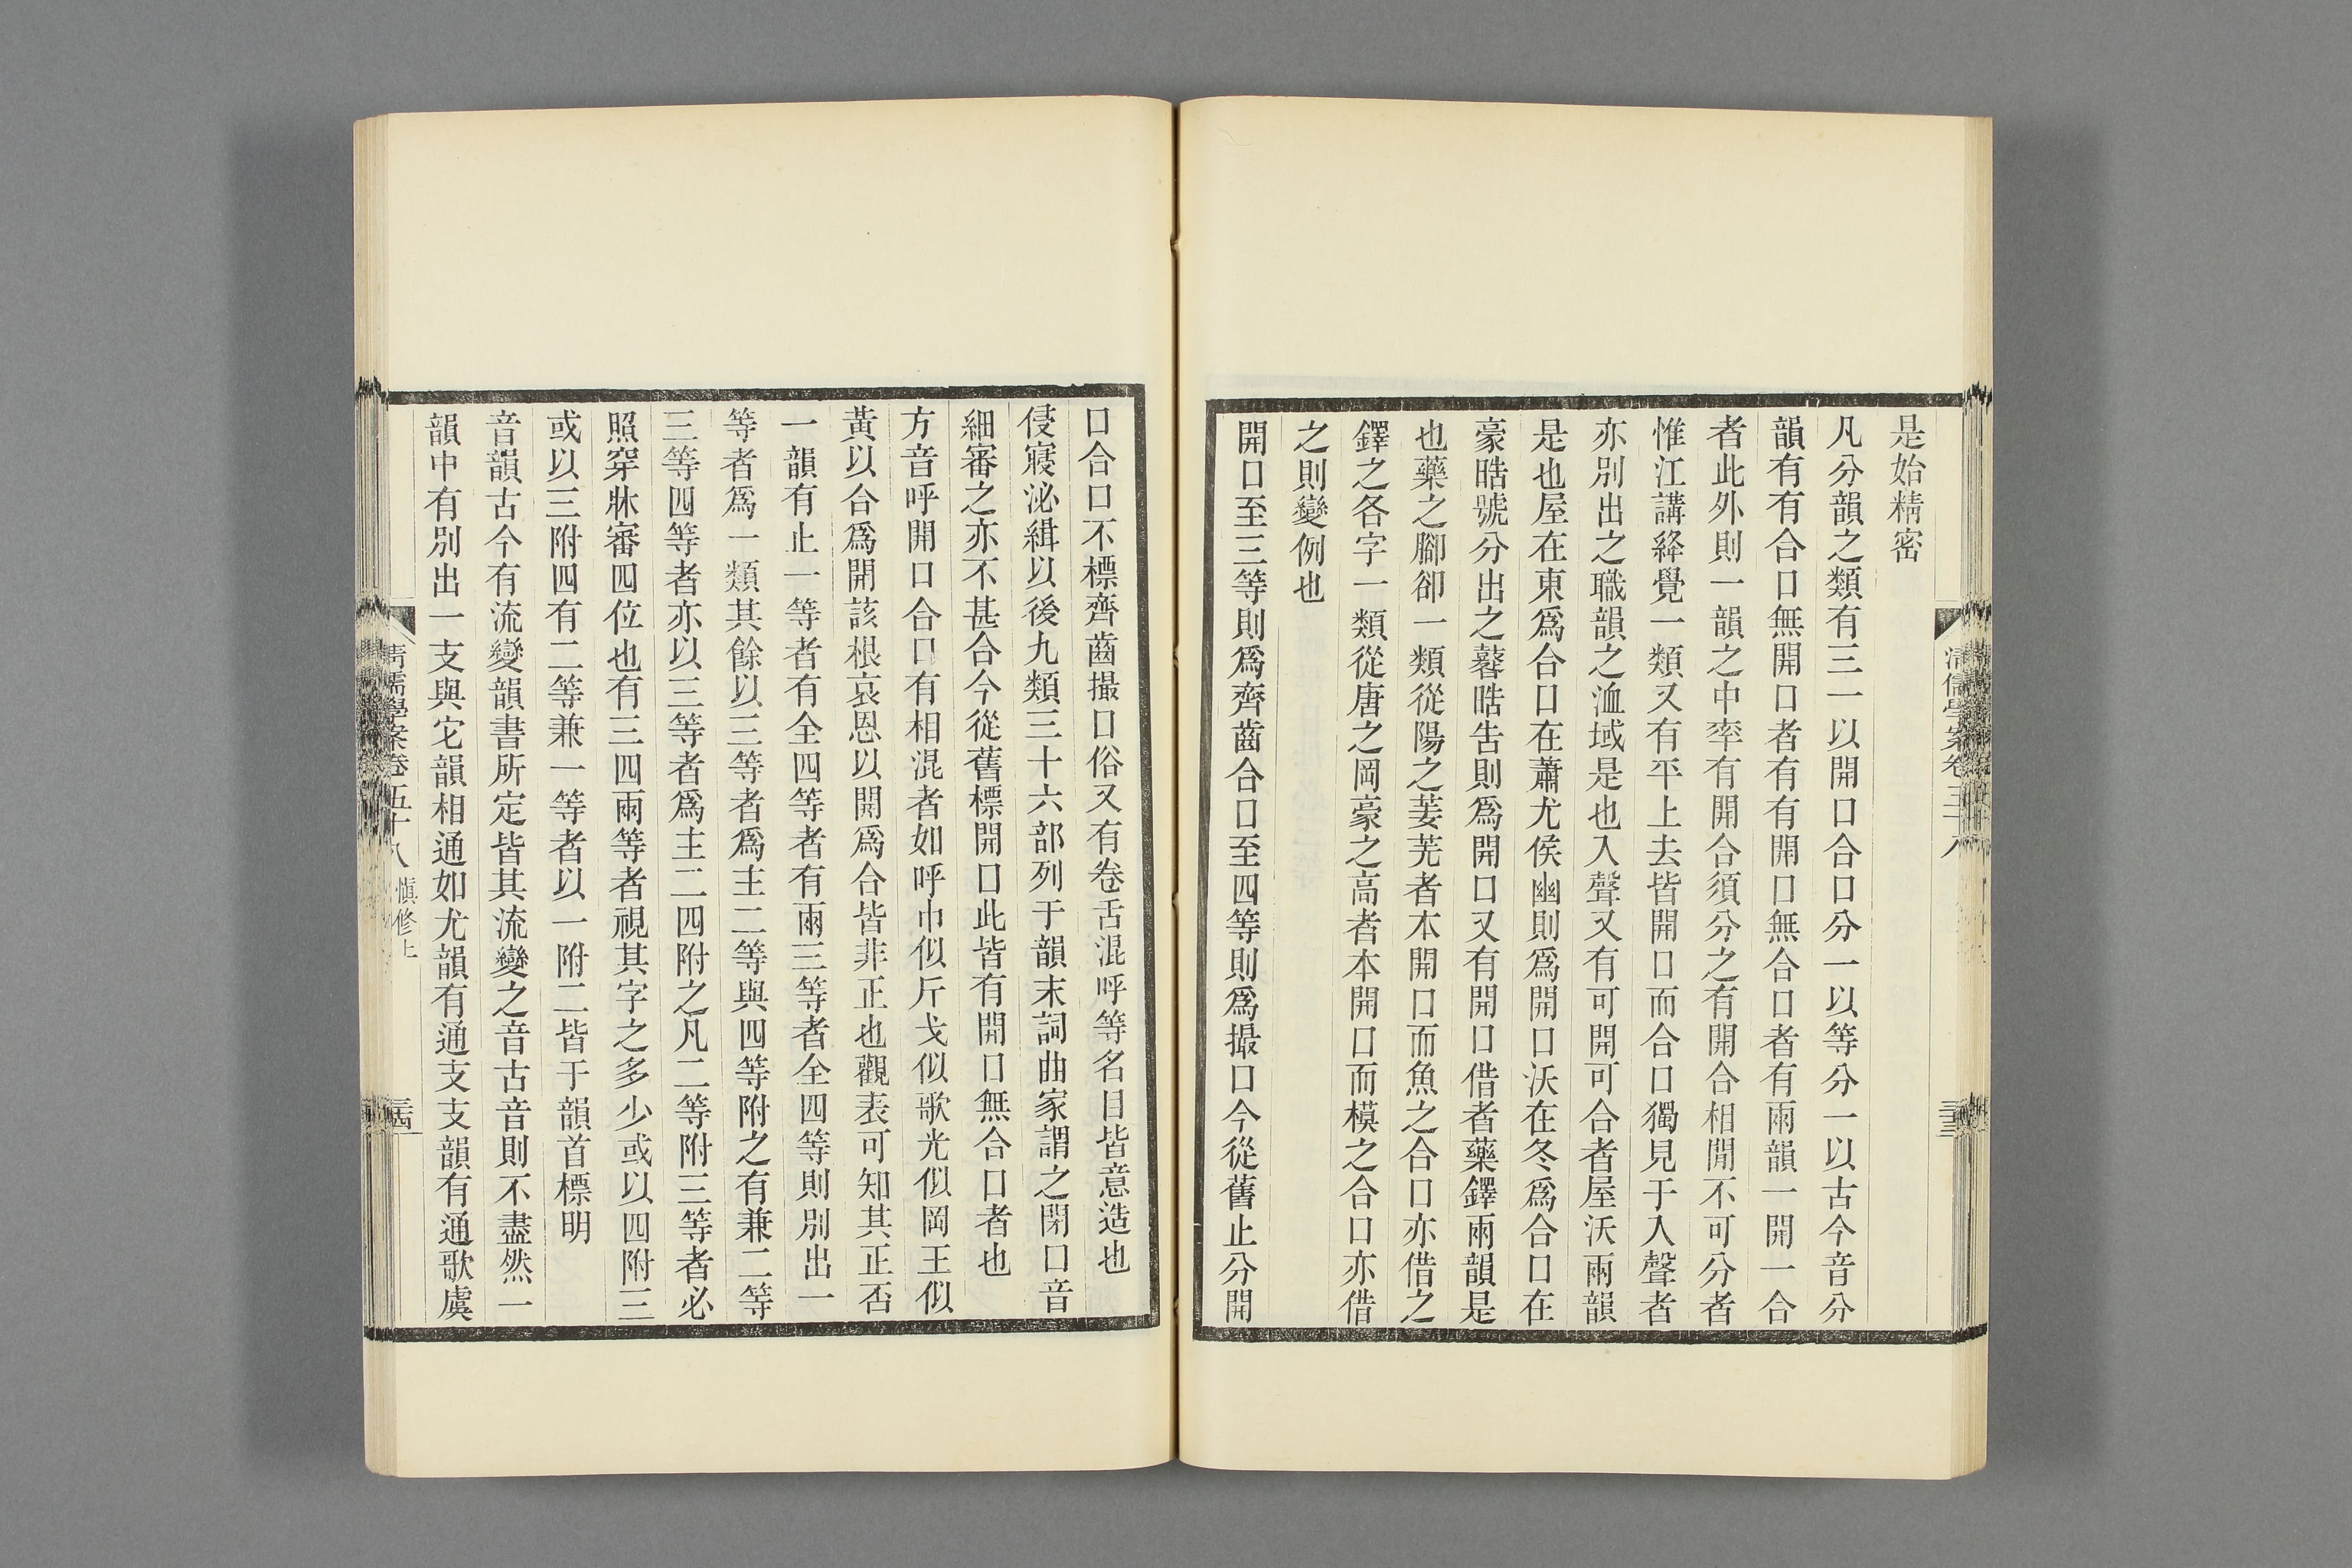 是始精密
凡分韻之類有三一以開口合口分一以等分一以古今音分
韻有有合口無開口者有有開口無合口者有兩韻一開一合
者此外則一韻之中率有開合須分之有開合相閒不可分者
惟江講絳覺一類又有平上去皆開口而合口獨見于入聲者
亦別出之職韻之洫域是也入聲又有可開可合者屋沃兩韻
是也屋在東爲合口在蕭尤侯幽則爲開口沃在冬爲合口在
豪晧號分出之鼛晧告則爲開口又有開口借者藥鐸兩韻是
也藥之腳卻一類從陽之姜羌者本開口而魚之合口亦借之
鐸之各字一類從唐之岡豪之高者本開口而模之合口亦借
之則變例也
開口至三等則爲齊齒合口至四等則爲撮口今從舊止分開
清儒學案卷五十八
三十三
口合口不標齊齒撮口俗又有卷舌混呼等名目皆意造也
侵寢沁緝以後九類三十六部列于韻末詞曲家謂之閉口音
細審之亦不甚合今從舊標開口此皆有開口無合口者也
方音呼開口合口有相混者如呼巾似斤戈似歌光似岡王似
黃以合爲開該根哀恩以開爲合皆非正也觀表可知其正否
一韻有止一等者有全四等者有兩三等者全四等則別出一
等者爲一類其餘以三等者爲主二等與四等附之有兼二等
三等四等者亦以三等者爲主二四附之凡二等附三等者必
照穿牀審四位也有三四兩等者視其字之多少或以四附三
或以三附四有二等兼一等者以一附二皆于韻首標明
音韻古今有流變韻書所定皆其流變之音古音則不盡然一
韻中有別出一支與它韻相通如尤韻有通支支韻有通歌虞
清儒學案卷五十八 愼修上
三十四